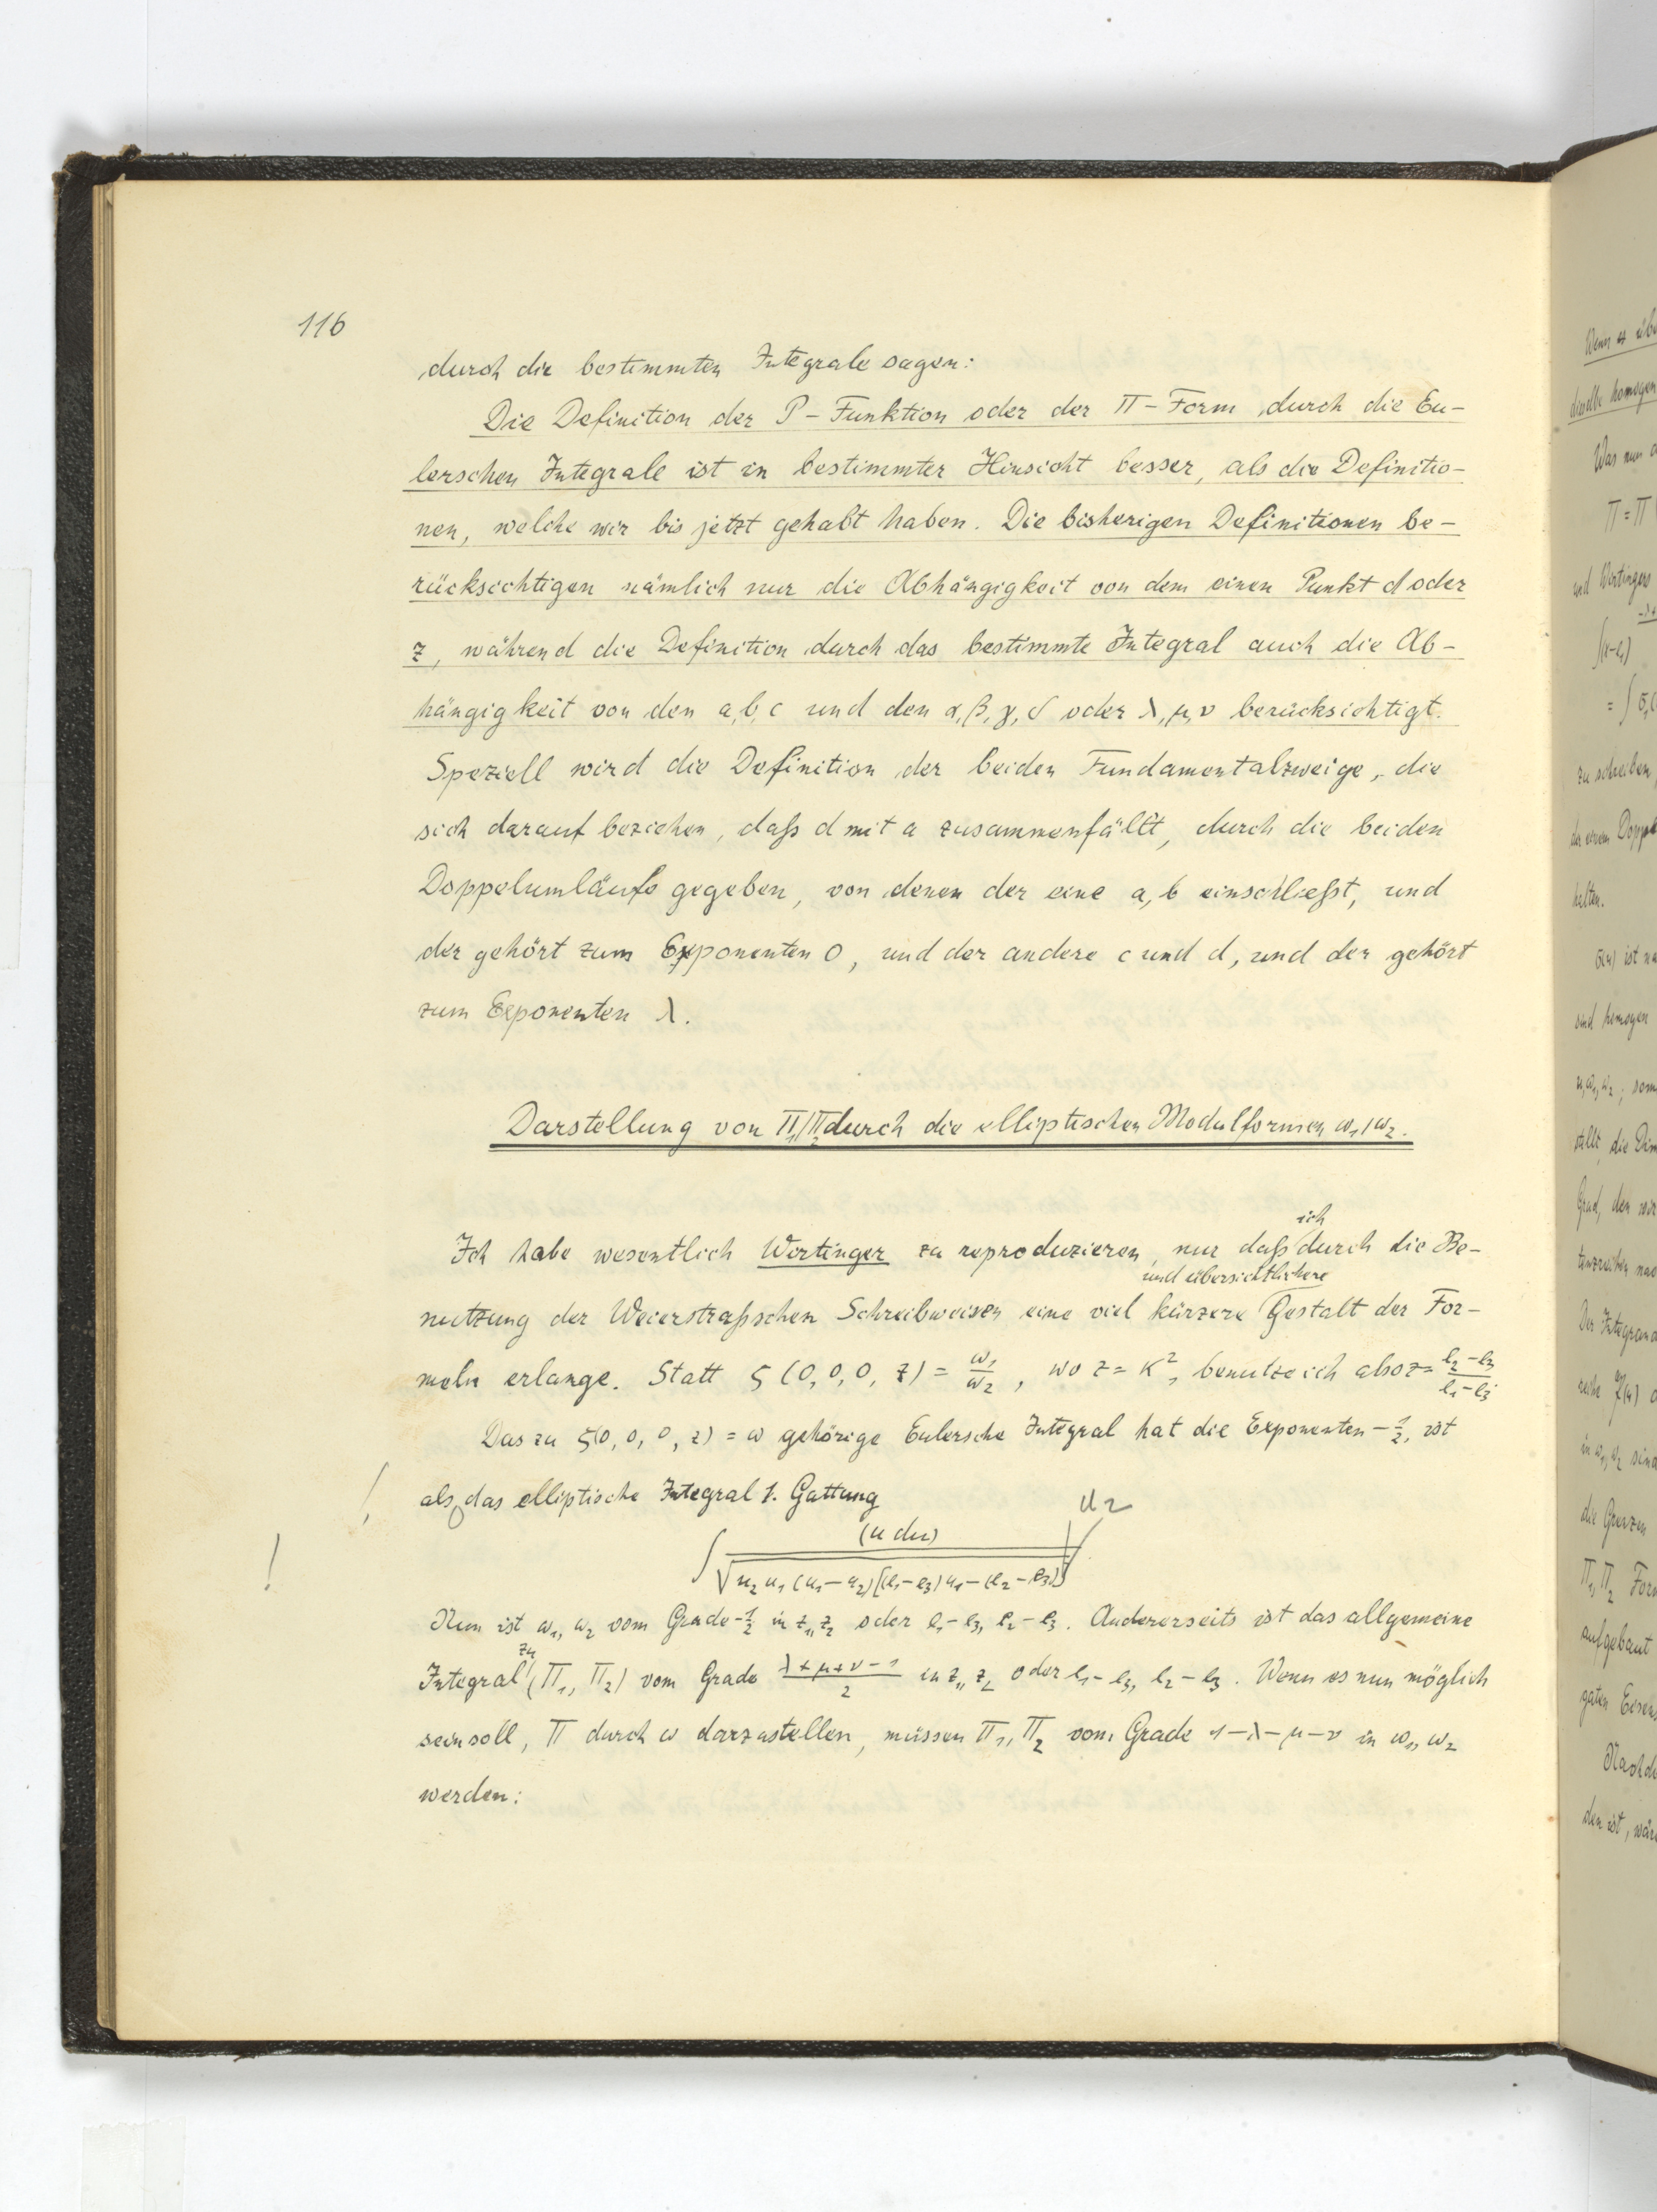 116
durch die bestimmten Integrale sagen:
Die Definition der P-Funktion oder der Π-Form durch die Eu-
lerschen Integrale ist in bestimmter Hinsicht besser, als die Definitio-
nen, welche wir bis jetzt gehabt haben. Die bisherigen Definitionen be-
rücksichtigen nämlich nur die Abhängigkeit von dem einen Punkt d oder
z, während die Definition durch das bestimmte Integral auch die Ab-
hängigkeit von den a, b, c und den α, β, γ, δ oder λ, μ, ν berücksichtigt.
Speziell wird die Definition der beiden Fundamentalzweige, die
sich darauf beziehen, daß d mit a zusammenfällt, durch die beiden
Doppelumläufe gegeben, von denen der eine a, b einschließt, und
der gehört zum Exponenten 0, und der andere c und d, und der gehört
zum Exponenten λ.
Darstellung von Π₁/Π₂ durch die elliptischen Modulformen ω₁/ω₂.
ich
Ich habe wesentlich Wirtinger zu reproduzieren, nur daß durch die Be-
und übersichtlichere
nutzung der Weierstraßschen Schreibweisen eine viel kürzere Gestalt der For-
meln erlange. Statt ζ(0, 0, 0, z) = ω₁/ω₂, wo z = K², benutze ich also z = (e₂-e₃)/(e₁-e₃)
Das zu ζ(0, 0, 0, z) = ω gehörige Eulersche Integral hat die Exponenten -1/2, ist
! also das elliptische Integral 1. Gattung
u₂
! ∫ (u du) / √(u₂ u₁ (u₁-u₂) [(e₁-e₃)u₁-(e₂-e₃)])
Nun ist ω₁, ω₂ vom Grade -1/2 in z₁, z₂ oder e₁-e₃, e₂-e₃. Andererseits ist das allgemeine
zu
Integral (Π₁, Π₂) vom Grade (λ+μ+ν-1)/2 in z₁, z₂ oder e₁-e₃, e₂-e₃. Wenn es nun möglich
sein soll, Π durch ω darzustellen, müssen Π₁, Π₂ vom Grade 1-λ-μ-ν in ω₁, ω₂
werden: